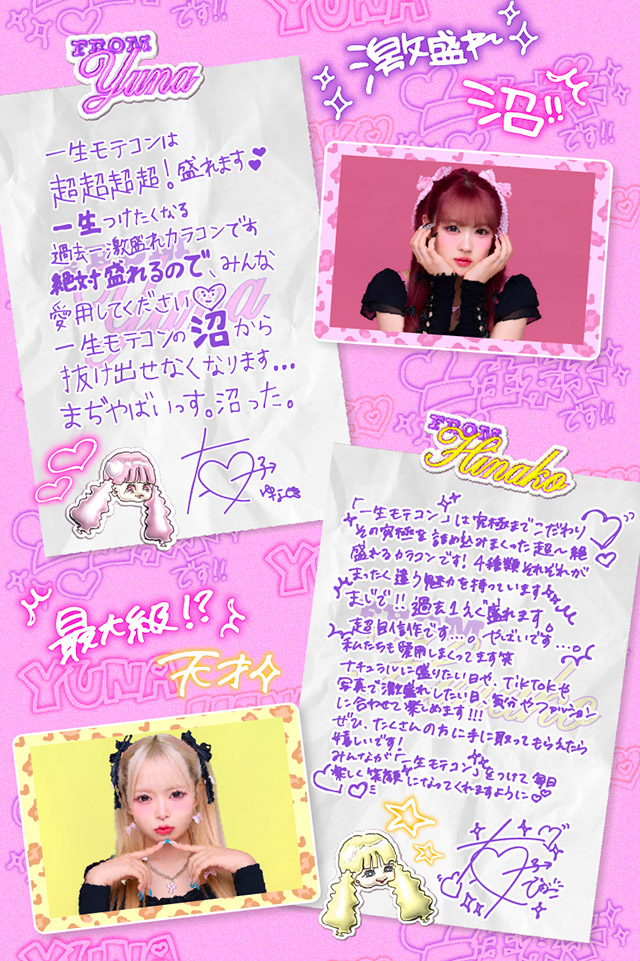 FROM
Yuna
一生モテコンは
超超超超！盛れます
一生つけたくなる
過去一激盛れカラコンです
絶対盛れるので、みんな
愛用してください
一生モテコンの沼から
抜け出せなくなります...
まぢやばいっす。沼った。
激盛れ
沼!!
FROM
Hinako
「一生モテコン」は究極までこだわり
その究極を詰め込みまくった超〜絶
盛れるカラコンです！4種類それぞれが
まったく違う魅力を持っています
まじで!!過去1えぐ盛れます。
超自信作です...。やばいです...。
私たちも愛用しまくってます笑
ナチュラルに盛りたい日や、TikTokや
写真で激盛れしたい日、気分やファッション
に合わせて楽しめます!!!
ぜひ、たくさんの方に手に取ってもらえたら
嬉しいです！
みんなが「一生モテコン」をつけて毎日
楽しく笑顔になってくれますように
最大級!?
天才
YUNA
YUNA
です!!
です!!